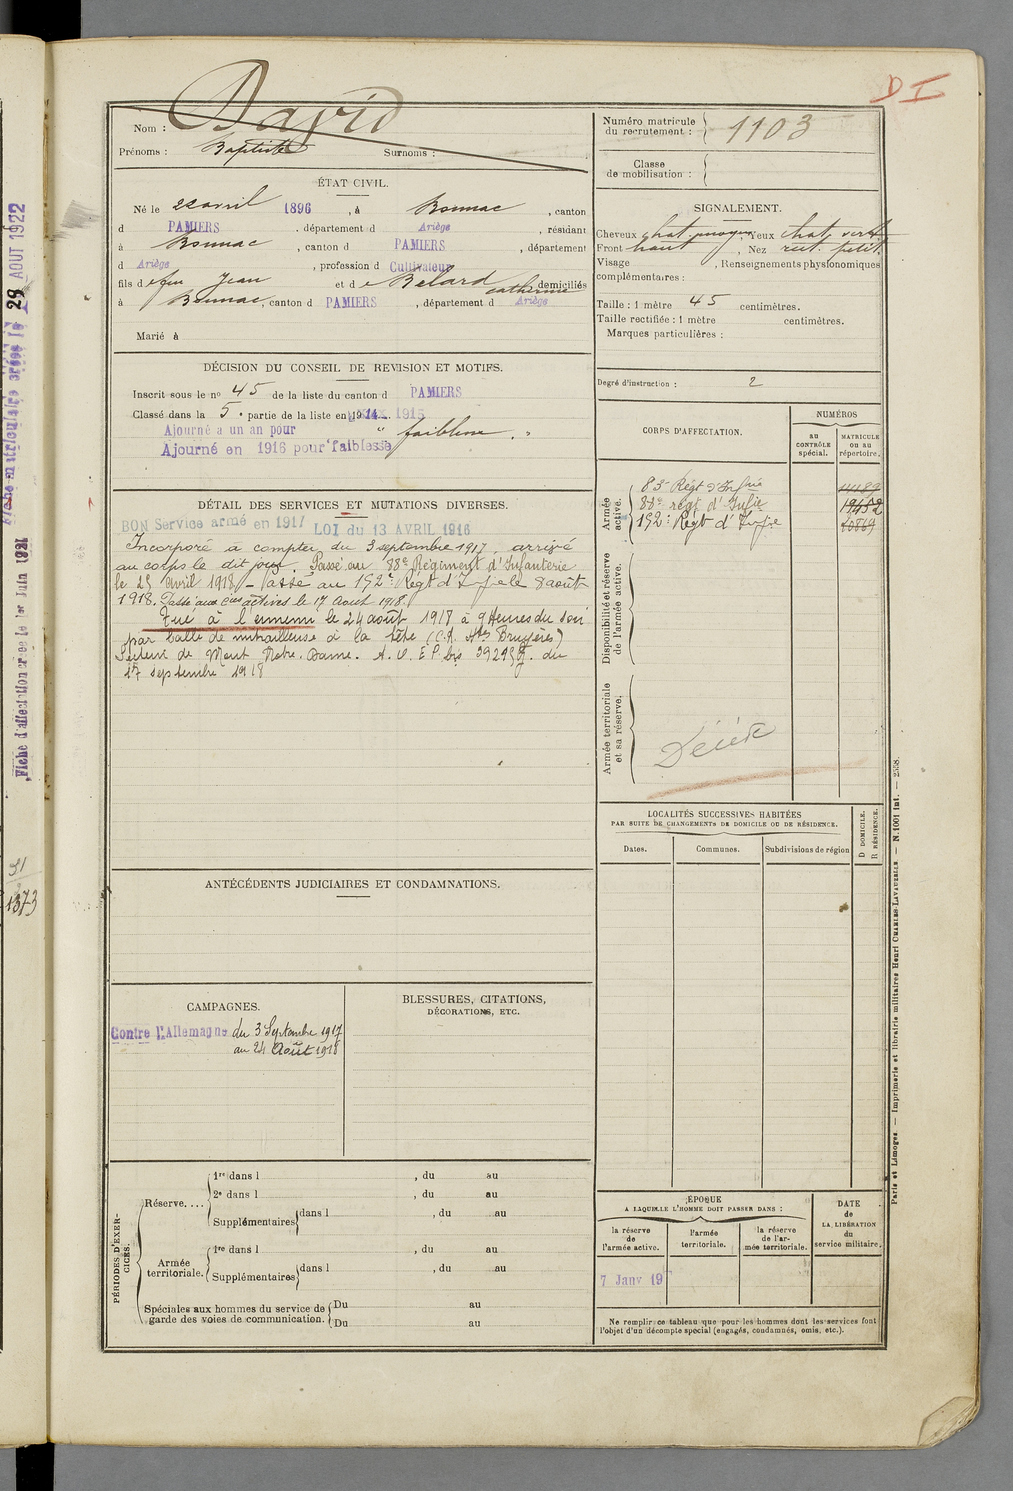 D I
Nom : David
Prénoms : Baptiste Surnoms :
Numéro matricule du recrutement : 1103
Classe de mobilisation :
ÉTAT CIVIL.
Né le 22 avril 1896, à Bonnac, canton
d PAMIERS, département d Ariège, résidant
à Bonnac, canton d PAMIERS, département
d Ariège, profession d Cultivateur
fils de feu Jean et de Belard Catherine domiciliés
à Bonnac, canton d PAMIERS, département d Ariège
Marié à
SIGNALEMENT.
Cheveux chat. moyen, Yeux chat. vert
Front haut, Nez rect. petit
Visage , Renseignements physionomiques
complémentaires :
Taille : 1 mètre 45 centimètres.
Taille rectifiée : 1 mètre centimètres.
Marques particulières :
Degré d'instruction : 2
DÉCISION DU CONSEIL DE REVISION ET MOTIFS.
Inscrit sous le no 45 de la liste du canton d PAMIERS
Classé dans la 5e partie de la liste en 1914 1915
Ajourné a un an pour " faiblesse "
Ajourné en 1916 pour faiblesse
DÉTAIL DES SERVICES ET MUTATIONS DIVERSES.
BON Service armé en 1917 LOI du 13 AVRIL 1916
Incorporé à compter du 3 septembre 1917, arrivé
au corps le dit jour. Passé au 88e Régiment d'Infanterie
le 25 avril 1918 – Passé au 152e Régt d'Infie le 8 août
1918. Passé aux Cies actives le 17 Aout 1918.
Tué à l'ennemi le 24 août 1917 à 9 Heures du soir
par balle de mitrailleuse à la tête (C.R. Ates Bruyères)
Secteur de Mont Notre-Dame. A. O. E P. bis 39245 du
17 septembre 1918
CORPS D'AFFECTATION.
NUMÉROS
au CONTRÔLE spécial.
MATRICULE ou au répertoire.
Armée active.
83e Régt d'Infie 14189
88e régt d'Infie 19452
152e Régt d'Infie 20869
Disponibilité et réserve de l'armée active.
Armée territoriale et sa réserve.
Décédé
LOCALITÉS SUCCESSIVES HABITÉES
PAR SUITE DE CHANGEMENTS DE DOMICILE OU DE RÉSIDENCE.
D DOMICILE.
R RÉSIDENCE.
Dates. Communes. Subdivisions de région
ANTÉCÉDENTS JUDICIAIRES ET CONDAMNATIONS.
CAMPAGNES.
Contre l'Allemagne du 3 Septembre 1917
au 24 Août 1918
BLESSURES, CITATIONS,
DÉCORATIONS, ETC.
PÉRIODES D'EXERCICES.
Réserve....
1re dans l , du au
2e dans l , du au
Supplémentaires dans l , du au
Armée territoriale.
1re dans l , du au
Supplémentaires dans l , du au
Spéciales aux hommes du service de garde des voies de communication.
Du au
Du au
ÉPOQUE
A LAQUELLE L'HOMME DOIT PASSER DANS :
la réserve de l'armée active.
l'armée territoriale.
la réserve de l'armée territoriale.
DATE de LA LIBÉRATION du service militaire.
7 Janv 19
Ne remplir ce tableau que pour les hommes dont les services font
l'objet d'un décompte spécial (engagés, condamnés, omis, etc.).
Paris et Limoges. — Imprimerie et librairie militaires Henri CHARLES-LAVAUZELLE — N. 1001 int. — 2358.
Fiche matriculaire créée le 29 AOUT 1922
Fiche d'affectation créée le 1er Juin 1921
51
1373